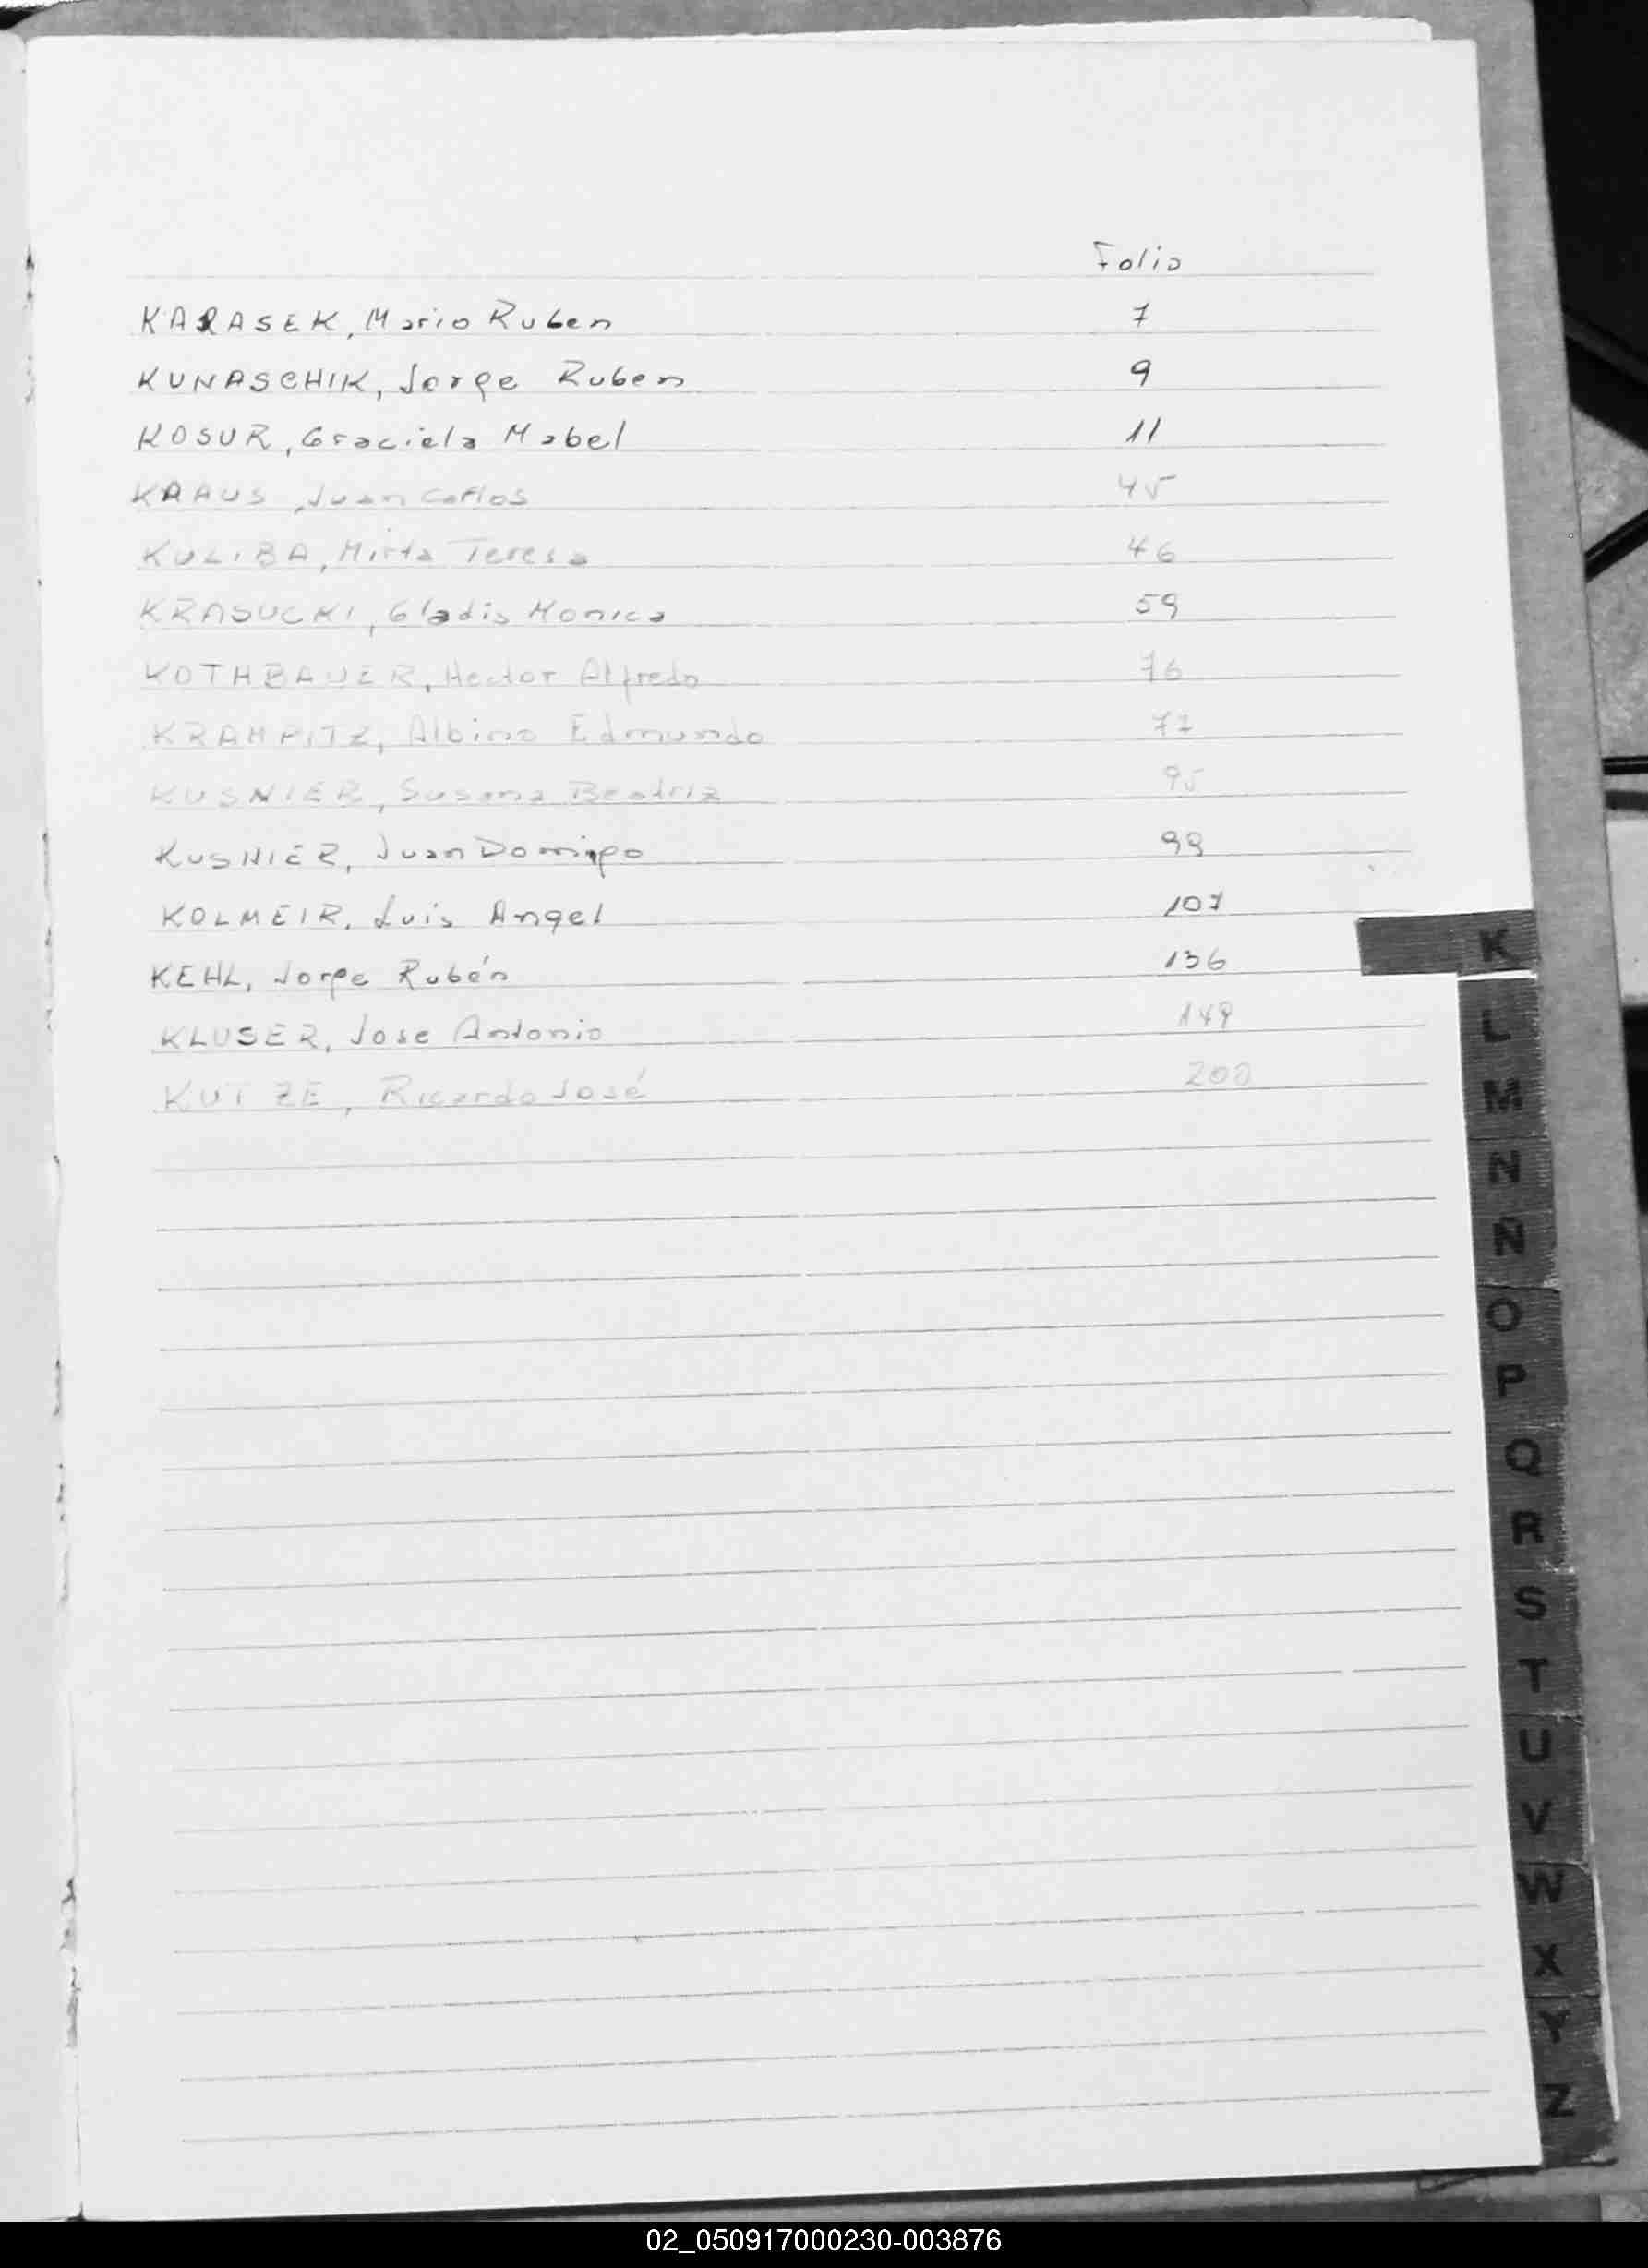 Folio
KARASEK, Mario Ruben 7
KUNASCHIK, Jorge Ruben 9
KOSUR, Graciela Mabel 11
KRAUS, Juan Carlos 45
KULIBA, Mirta Teresa 46
KRASUCKI, Gladis Monica 59
KOTHBAUER, Hector Alfredo 76
KRAMPITZ, Albino Edmundo 77
KUSNIER, Susana Beatriz 95
KUSNIER, Juan Domingo 99
KOLMEIR, Luis Angel 107
KEHL, Jorge Rubén 136
KLUSER, Jose Antonio 149
KUTZE, Ricardo José 200
K
L
M
N
Ñ
O
P
Q
R
S
T
U
V
W
X
Y
Z
02_050917000230-003876